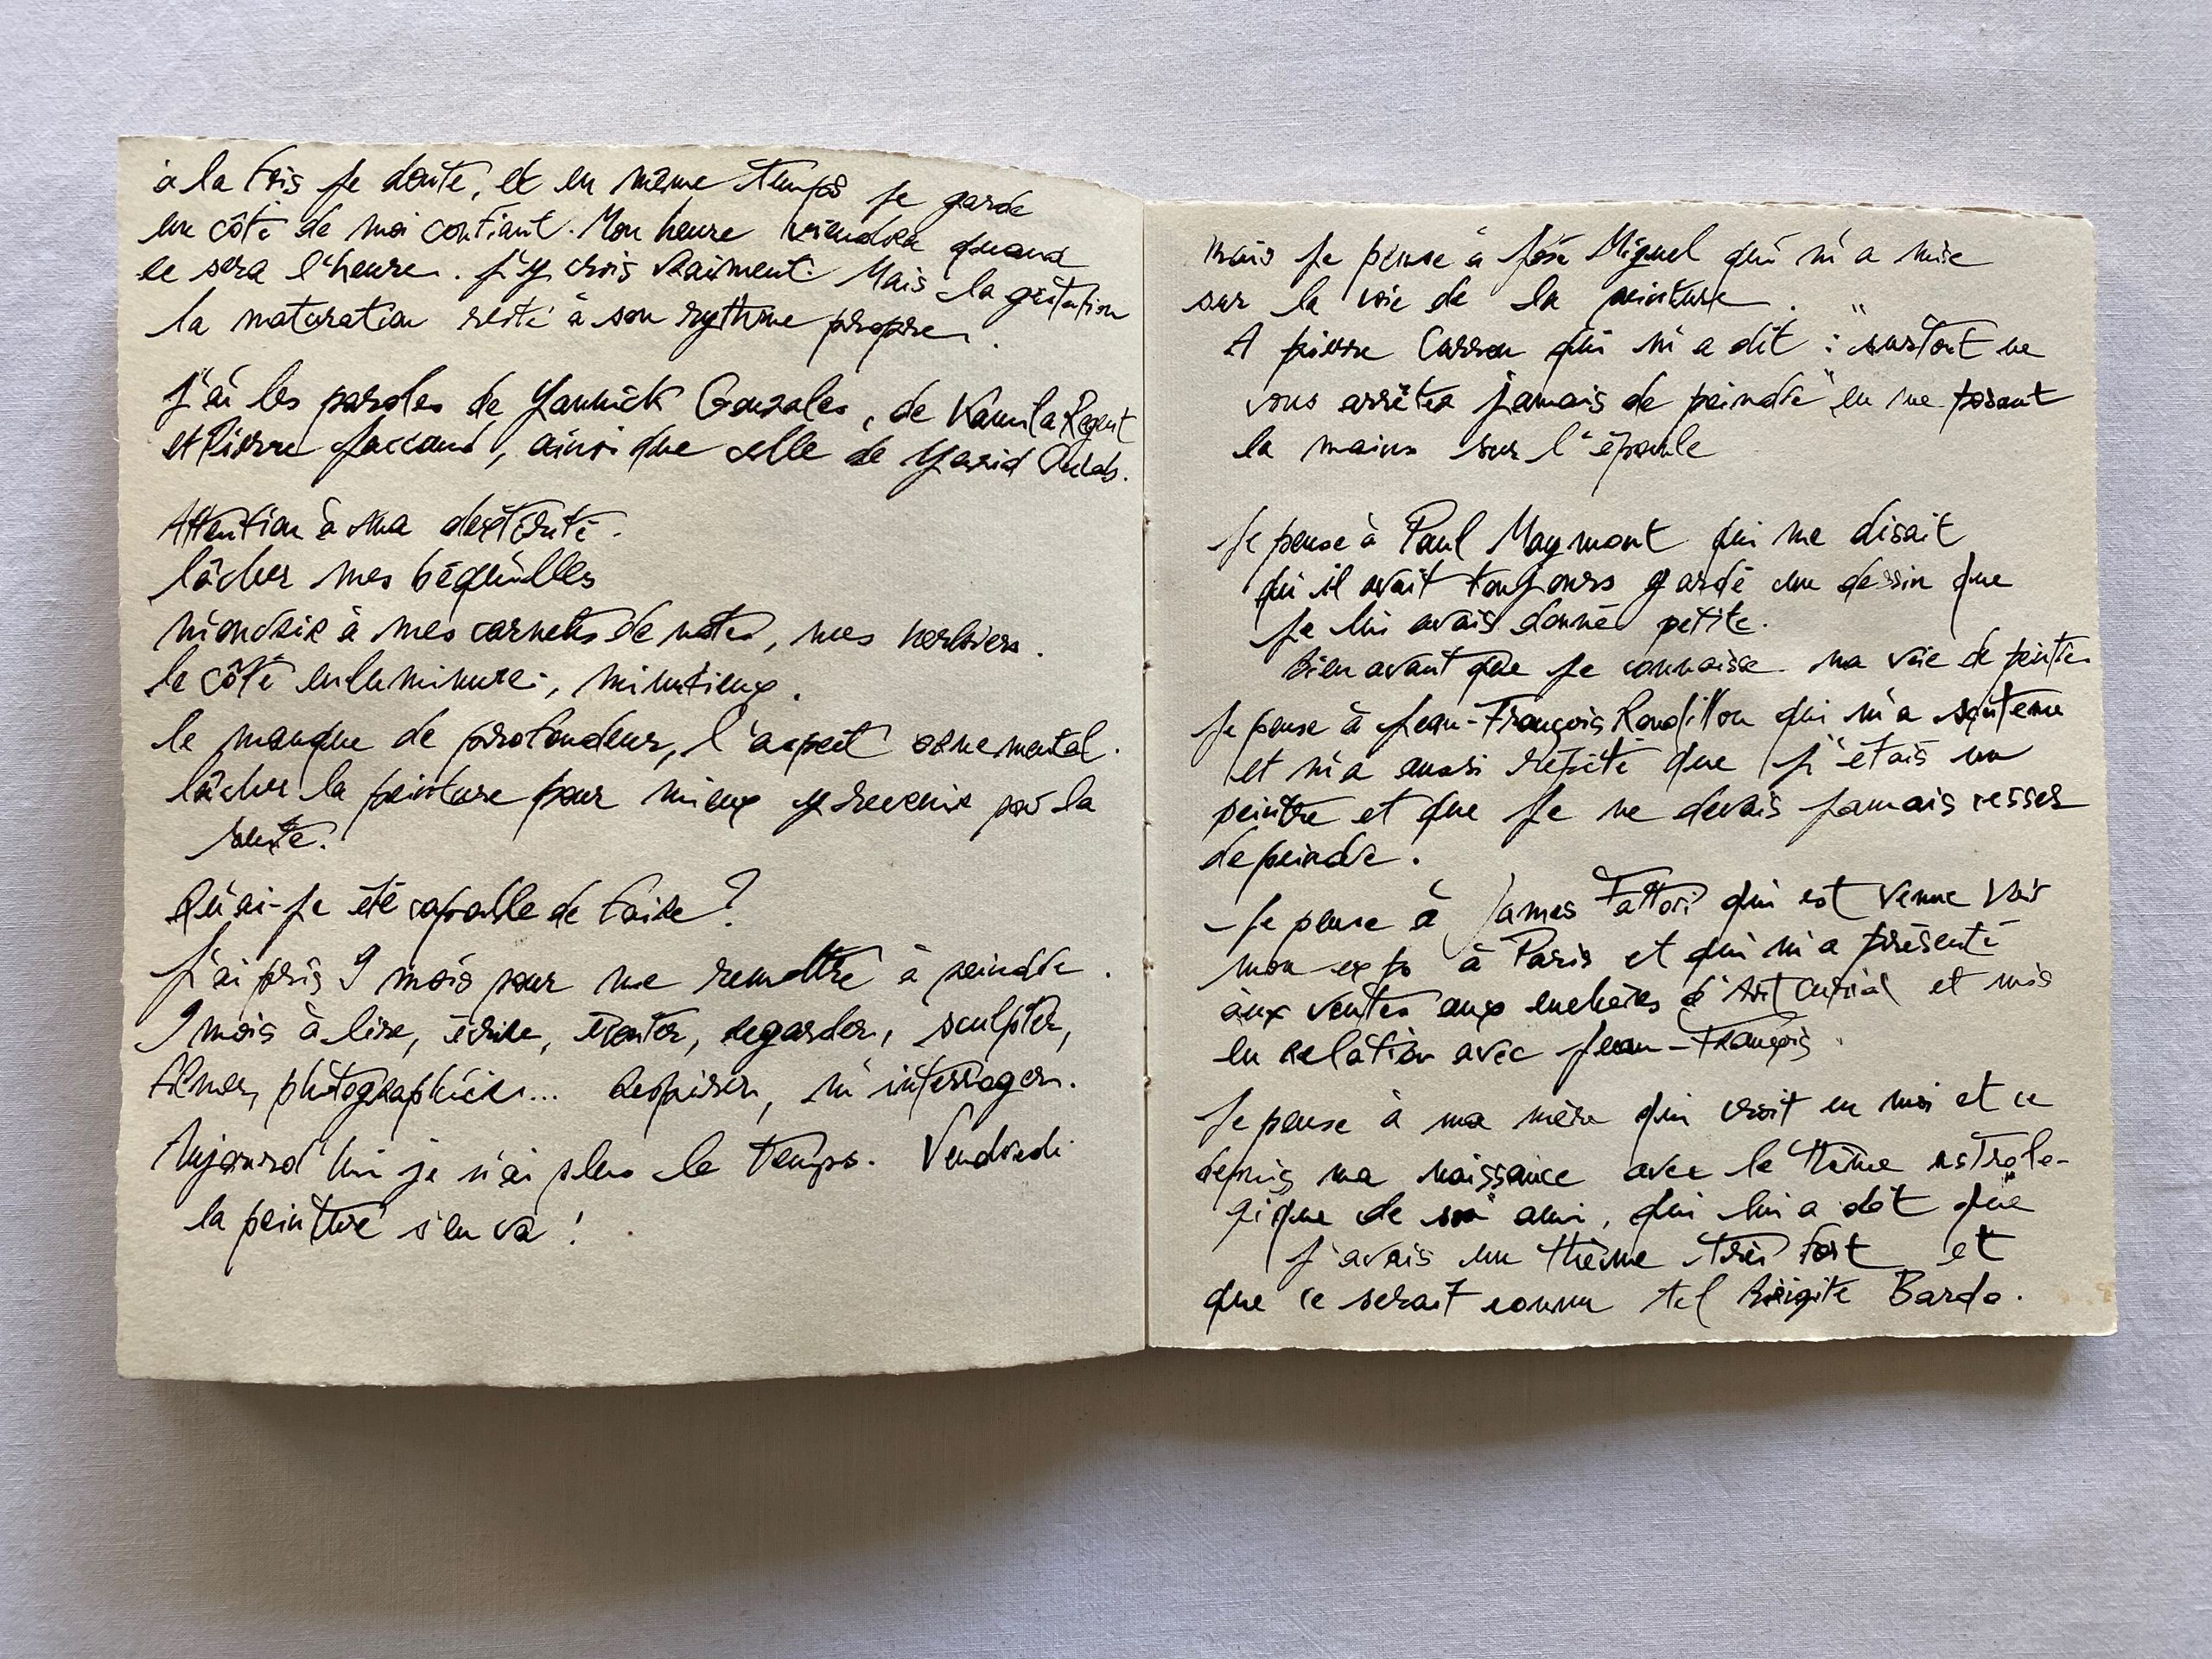 à la fois je doute, et en même temps je garde
un côté de moi confiant. Mon heure viendra quand
ce sera l'heure. J'y crois vraiment. Mais la gestation
la maturation reste à son rythme propre.
J'ai les paroles de Yannick Gonzales, de Kamila Regent
et Pierre Jaccaud, ainsi que celle de Yazid Oulab.
Attention à ma dextérité.
lâcher mes béquilles
à mes carnets de notes, mes herbiers.
le côté enluminure, minutieux.
le manque de profondeur, l'aspect ornemental.
lâcher la peinture pour mieux y revenir par la
suite.
Qu'ai-je été capable de faire ?
J'ai pris 9 mois pour me remettre à peindre.
9 mois à lire, écrire, écouter, regarder, sculpter,
filmer, photographier... respirer, m'interroger.
Aujourd'hui je n'ai plus le temps. Vendredi
la peinture s'en va !
Mais je pense à José Miguel qui m'a mise
sur la voie de la peinture.
A pierre Carron qui m'a dit : "surtout ne
vous arrêtez jamais de peindre" en me posant
la mains sur l'épaule
Je pense à Paul Maymont qui me disait
qu'il avait toujours gardé un dessin que
je lui avais donné petite.
bien avant que je connaisse ma voie de peintre
Je pense à Jean-François Rondillon qui m'a soutenu
et m'a aussi répété que j'étais un
peintre et que je ne devais jamais cesser
de peindre.
Je pense à James Fattori qui est venue voir
mon expo à Paris et qui m'a présenté
aux ventes aux enchères d'Art Curial et mis
en relation avec Jean-François.
Je pense à ma mère qui croit en moi et ce
depuis ma naissance avec le thème astrolo-
gique de son ami, qui lui a dit que
j'avais un thème très fort et
que ce serait connu tel Brigite Bardo.